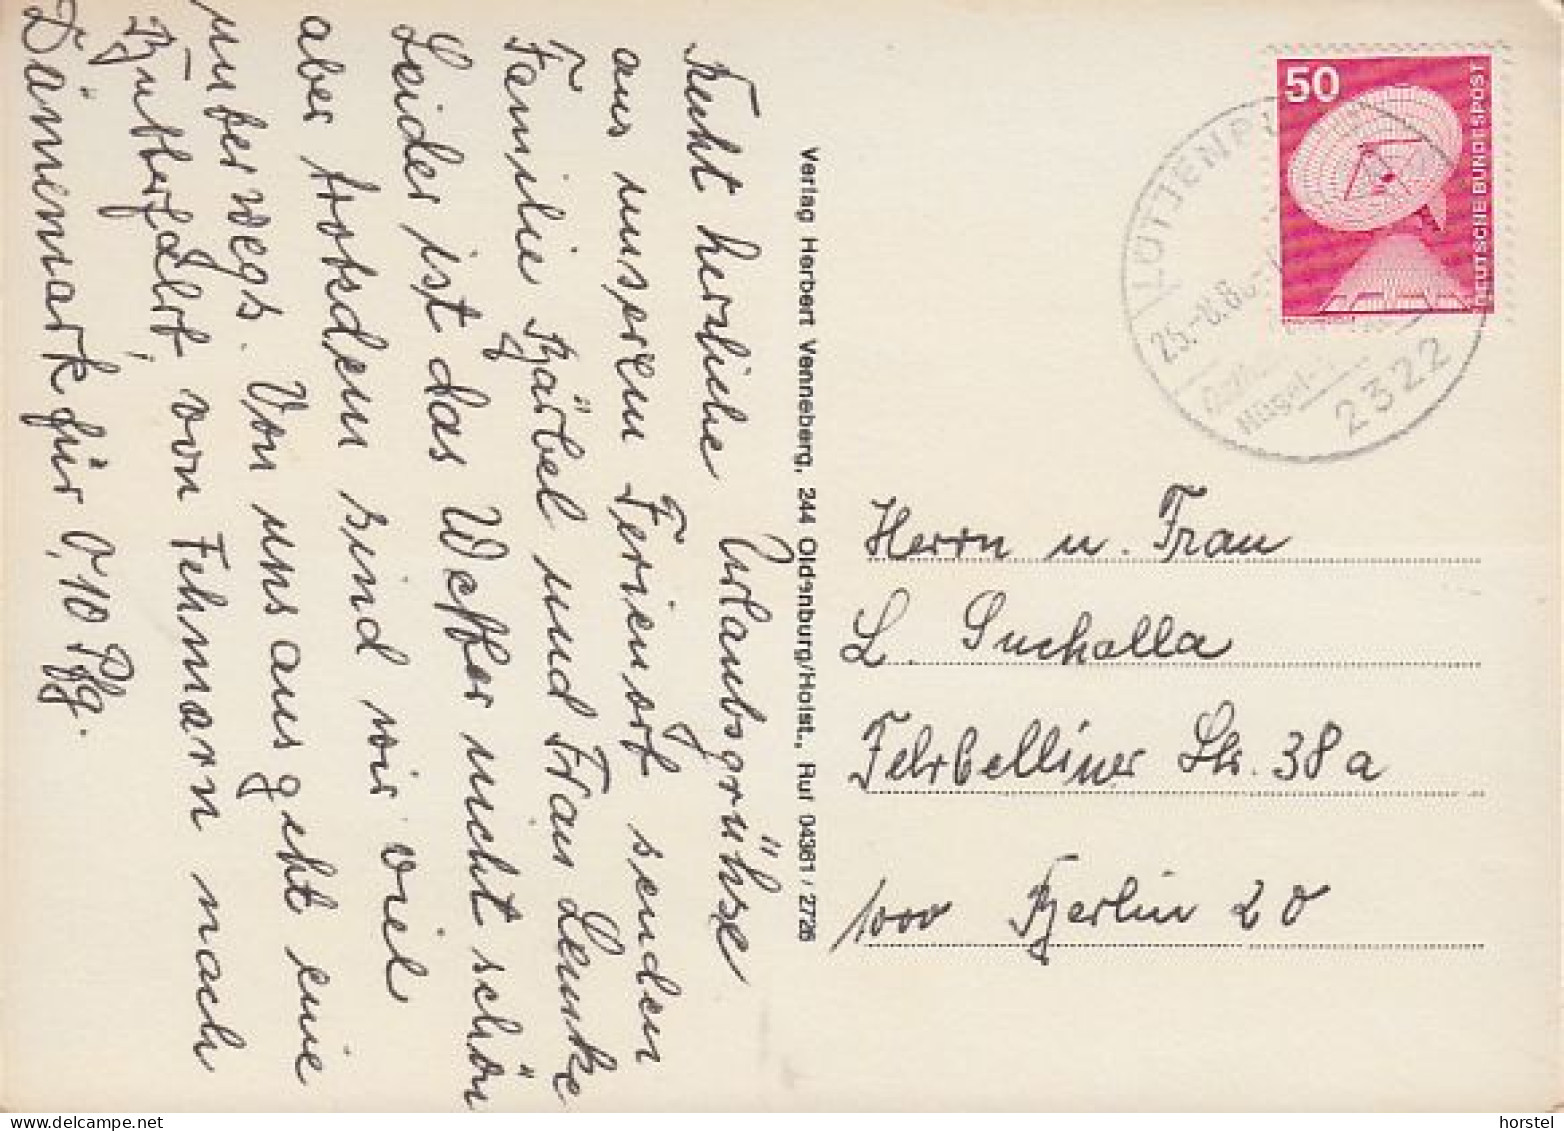 Recht herzliche Urlaubsgrühse
aus unserem Ferienort senden
Familie Bärbel und Frau Lemke
Leider ist das Wetter nicht schön
aber trotzdem sind wir viel
unterwegs. Von uns aus geht eine
Butterfahrt, von Fehmarn nach
Dänemark für 0,10 Pfg.
Verlag Herbert Venneberg, 244 Oldenburg/Holst., Ruf 04361 / 2726
50
DEUTSCHE BUNDESPOST
25.-8.80
2322
Herrn u. Frau
L. Suchalla
Fehrbelliner Str. 38a
1000 Berlin 20
horstel